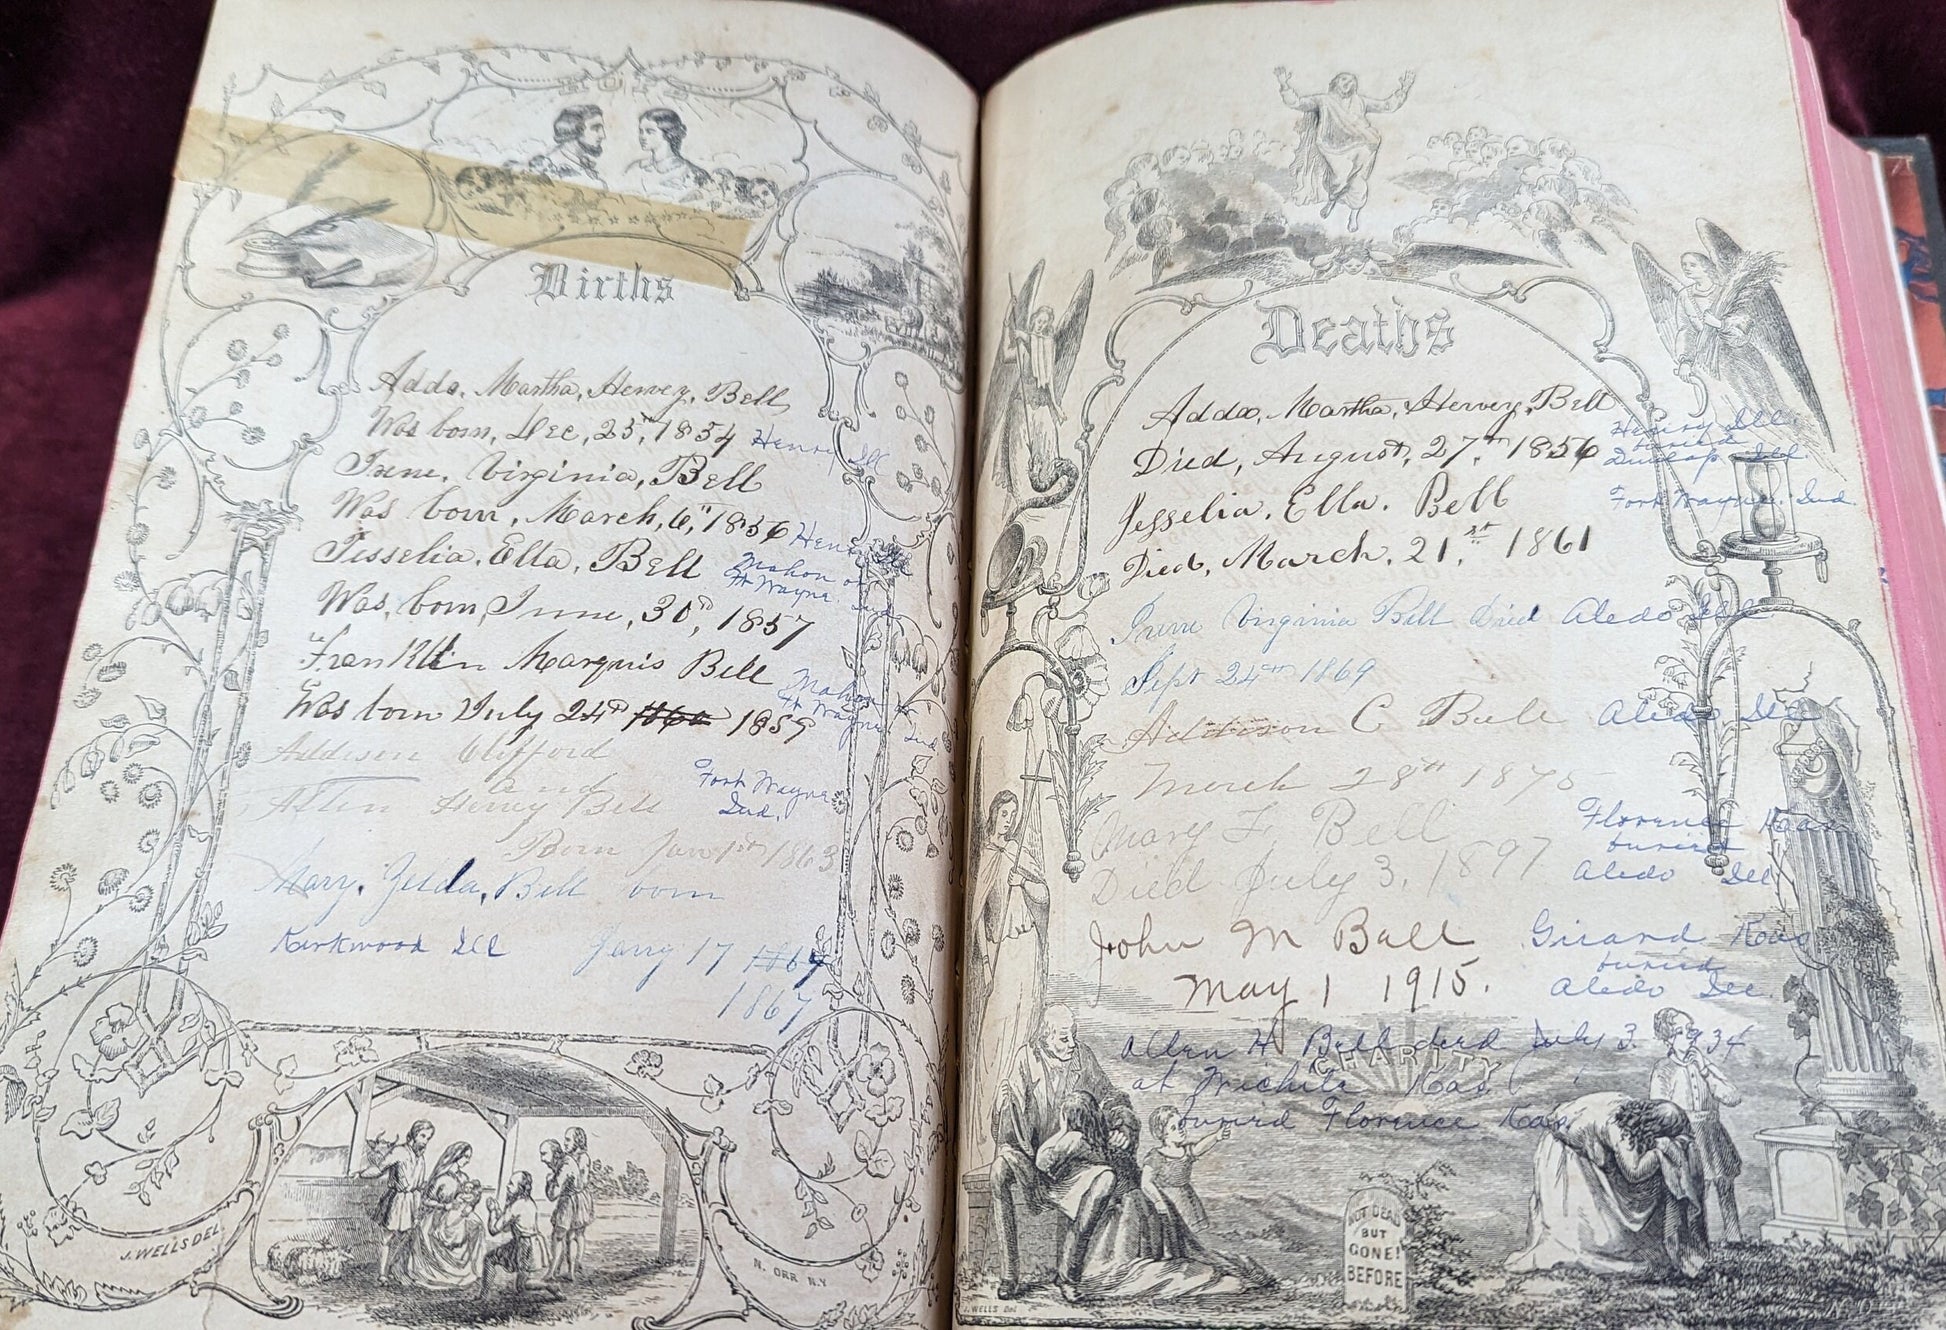 Births
Adda, Martha, Hervey, Bell,
Was born, Dec, 25th, 1854 Henry Ill
Irene, Virginia, Bell
Was born, March, 6, 1856 Henry
Jesselia, Ella, Bell Mahon or
Ft Wayne, Ind
Was, born, June, 30, 1857
Franklin Marquis Bell Mahon or
Ft Wayne, Ind
Was born July 24th 1860 1859
Addison Clifford
and
Allen Henry Bell Fort Wayne
Ind.
Born Jan 1st 1863
Mary, Zelda, Bell born
Kirkwood Ill Jany 17 1867
1867
J. WELLS DEL.
N. ORR N.Y
Deaths
Adda, Martha, Hervey, Bell Henry Ill.
buried
Died, August, 27th, 1856 Dunlap Ill
Jesselia, Ella. Bell Fort Wayne. Ind.
Died, March, 21st, 1861
Irene Virginia Bell Died Aledo Ill
Sept 24th 1869
Addison C Bell Aledo Ill
March 28th 1875
Mary F. Bell Florence Kas
buried
Died July 3, 1897 Aledo Ill
John M Bell Girard Kas
buried
May 1 1915. Aledo Ill.
CHARITY
Allen H Bell died July 3. 1934
at Wichita Kas
buried Florence Kas.
NOT DEAD
BUT
GONE!
BEFORE
J. WELLS Del